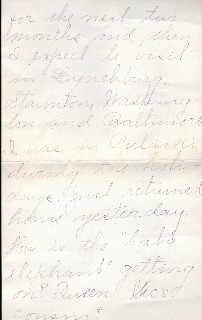 for the next two
months and then
I expect to visit
in Lynchburg,
Staunton, Washing-
ton and Baltimore.
I was in Pulaski
during the holi-
days, just returned
home yesterday.
How is the "baby
elephant" getting
on? Queen Vic's
cousin?